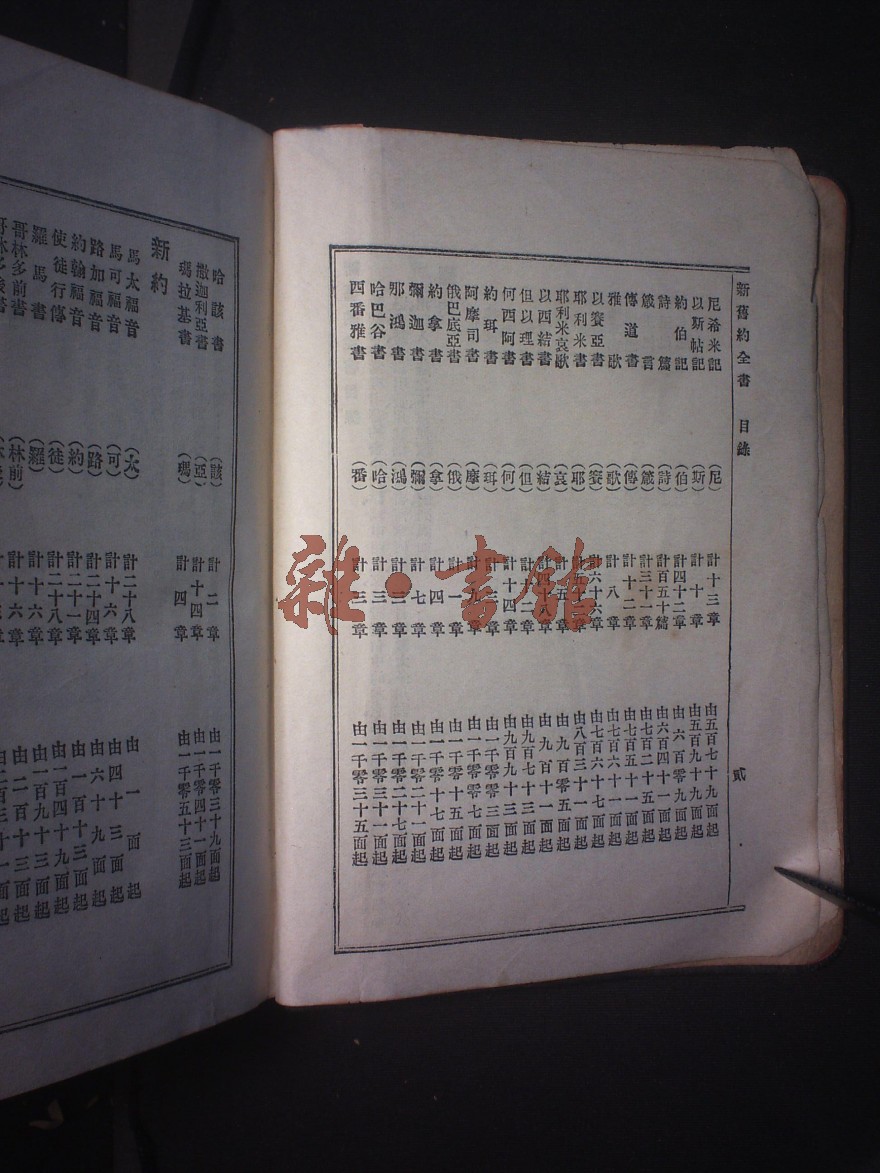 新舊約全書 目錄 貳
尼希米記 (尼) 計十三章 由五百七十九面起
以斯帖記 (斯) 計十章 由五百九十九面起
約伯記 (伯) 計四十二章 由六百零九面起
詩篇 (詩) 計百五十篇 由六百四十一面起
箴言 (箴) 計三十一章 由七百二十五面起
傳道書 (傳) 計十二章 由七百五十一面起
雅歌 (歌) 計八章 由七百六十一面起
以賽亞書 (賽) 計六十六章 由七百六十七面起
耶利米書 (耶) 計五十二章 由八百三十一面起
耶利米哀歌 (哀) 計五章 由九百零五面起
以西結書 (結) 計四十八章 由九百十一面起
但以理書 (但) 計十二章 由九百七十三面起
何西阿書 (何) 計十四章 由九百九十三面起
約珥書 (珥) 計三章 由一千零零三面起
阿摩司書 (摩) 計九章 由一千零零七面起
俄巴底亞書 (俄) 計一章 由一千零十五面起
約拿書 (拿) 計四章 由一千零十七面起
彌迦書 (彌) 計七章 由一千零二十一面起
那鴻書 (鴻) 計三章 由一千零二十七面起
哈巴谷書 (哈) 計三章 由一千零三十一面起
西番雅書 (番) 計三章 由一千零三十五面起
哈該書 (該) 計二章 由一千零三十九面起
撒迦利亞書 (亞) 計十四章 由一千零四十一面起
瑪拉基書 (瑪) 計四章 由一千零五十三面起
新約
馬太福音 (太) 計二十八章 由一面起
馬可福音 (可) 計十六章 由四十三面起
路加福音 (路) 計二十四章 由六十九面起
約翰福音 (約) 計二十一章 由一百十三面起
使徒行傳 (徒) 計二十八章 由一百四十九面起
羅馬書 (羅) 計十六章 由一百九十三面起
哥林多前書 (林前) 計十六章 由二百十三面起
雜·書館